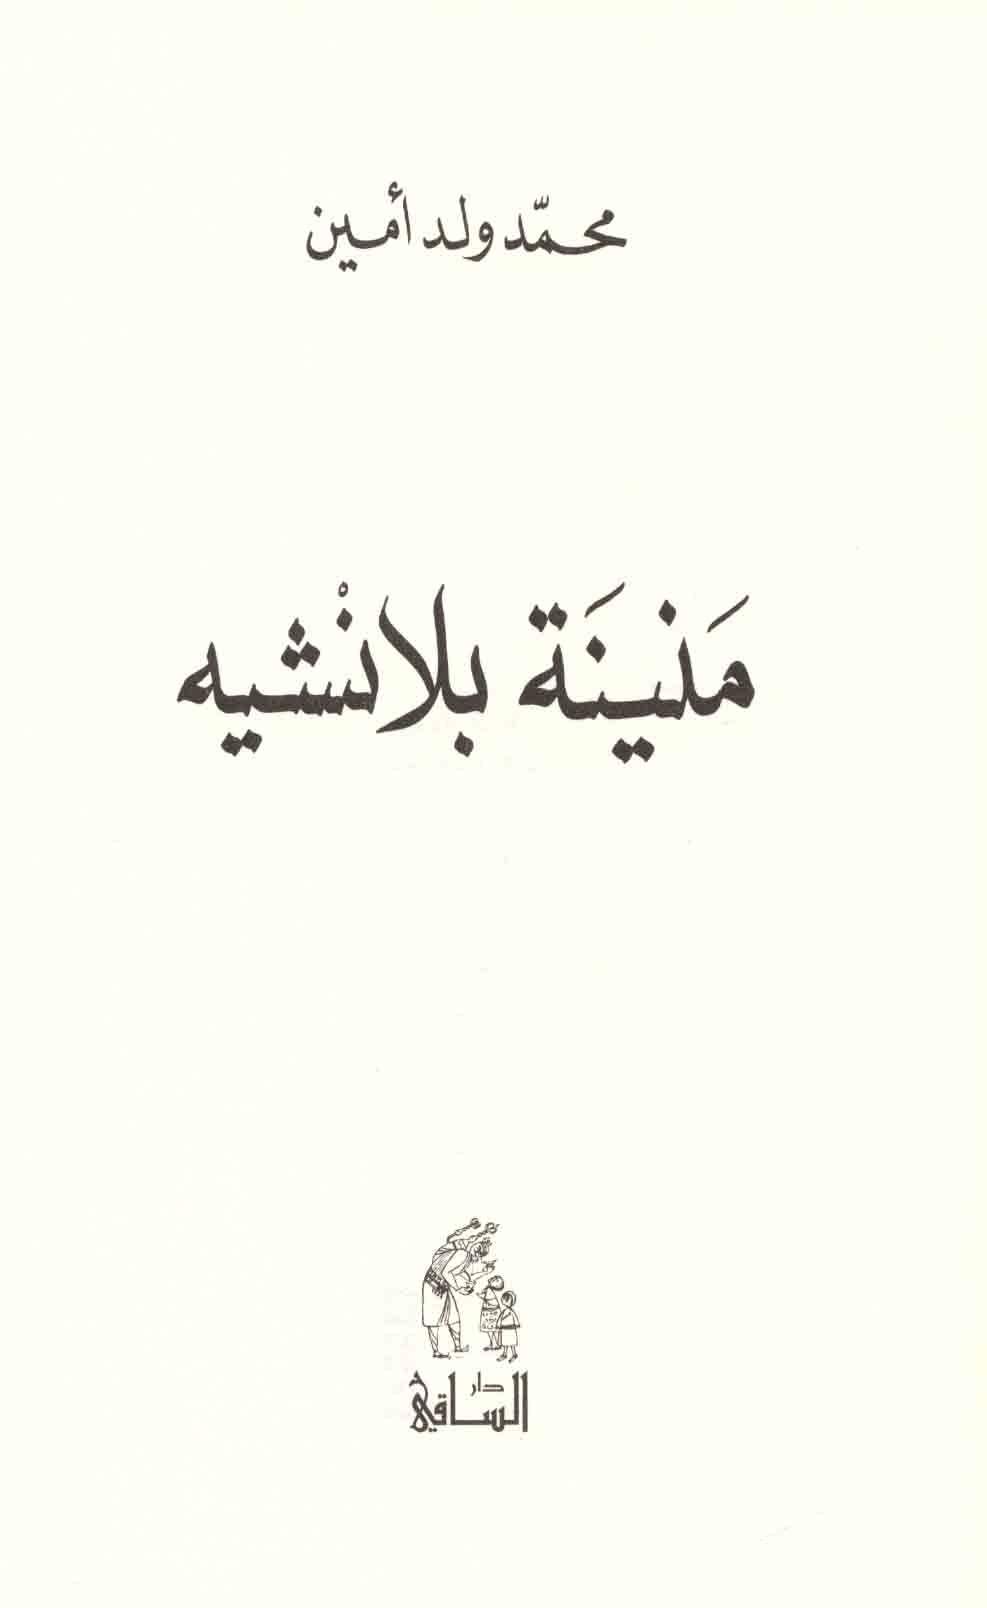 محمّد ولد أمين
مَنينَة بلانْشيه
دار
الساقي